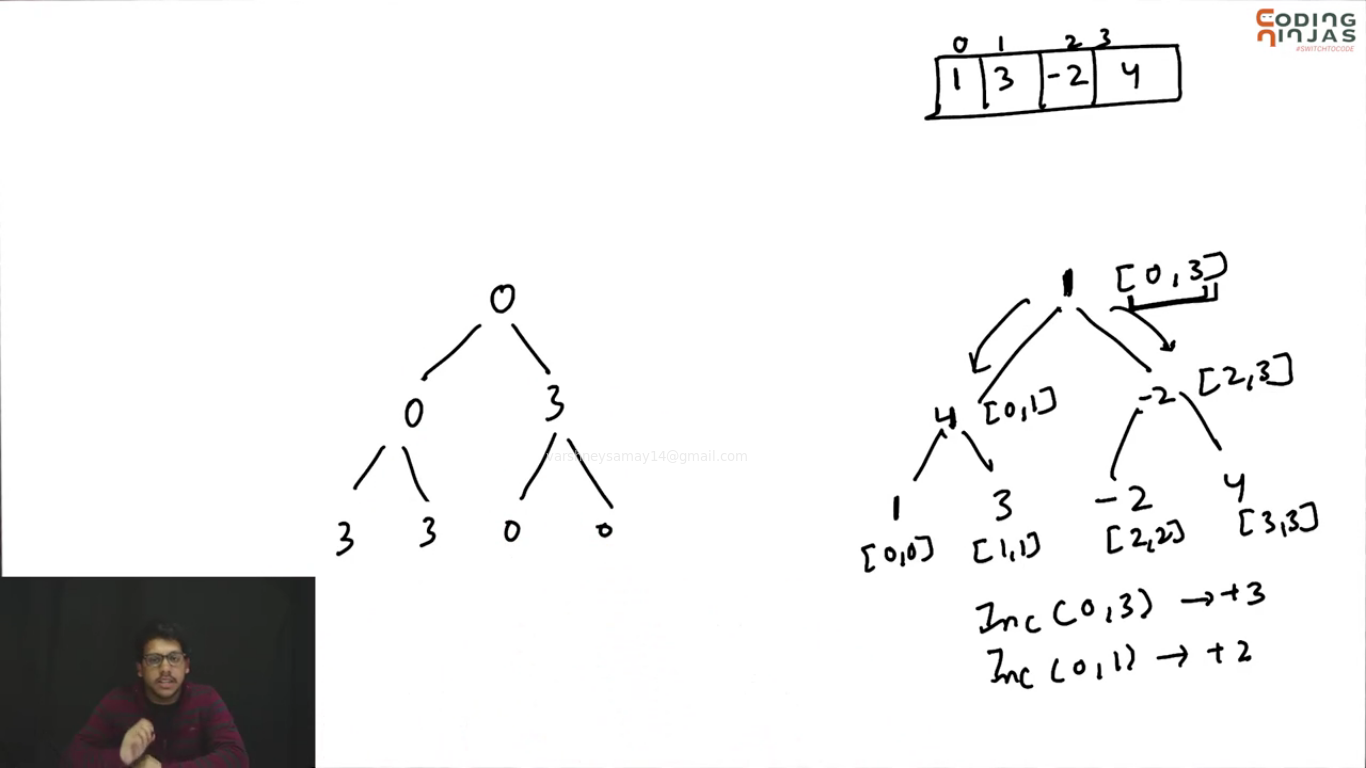 CODING
NINJAS
#SWITCHTOCODE
0 1 2 3
1 3 -2 4
1 [0,3]
0
0 3
4 [0,1] -2 [2,3]
varshneysamay14@gmail.com
3 3 0 0
1 3 -2 4
[0,0] [1,1] [2,2] [3,3]
Inc (0,3) → +3
Inc (0,1) → +2